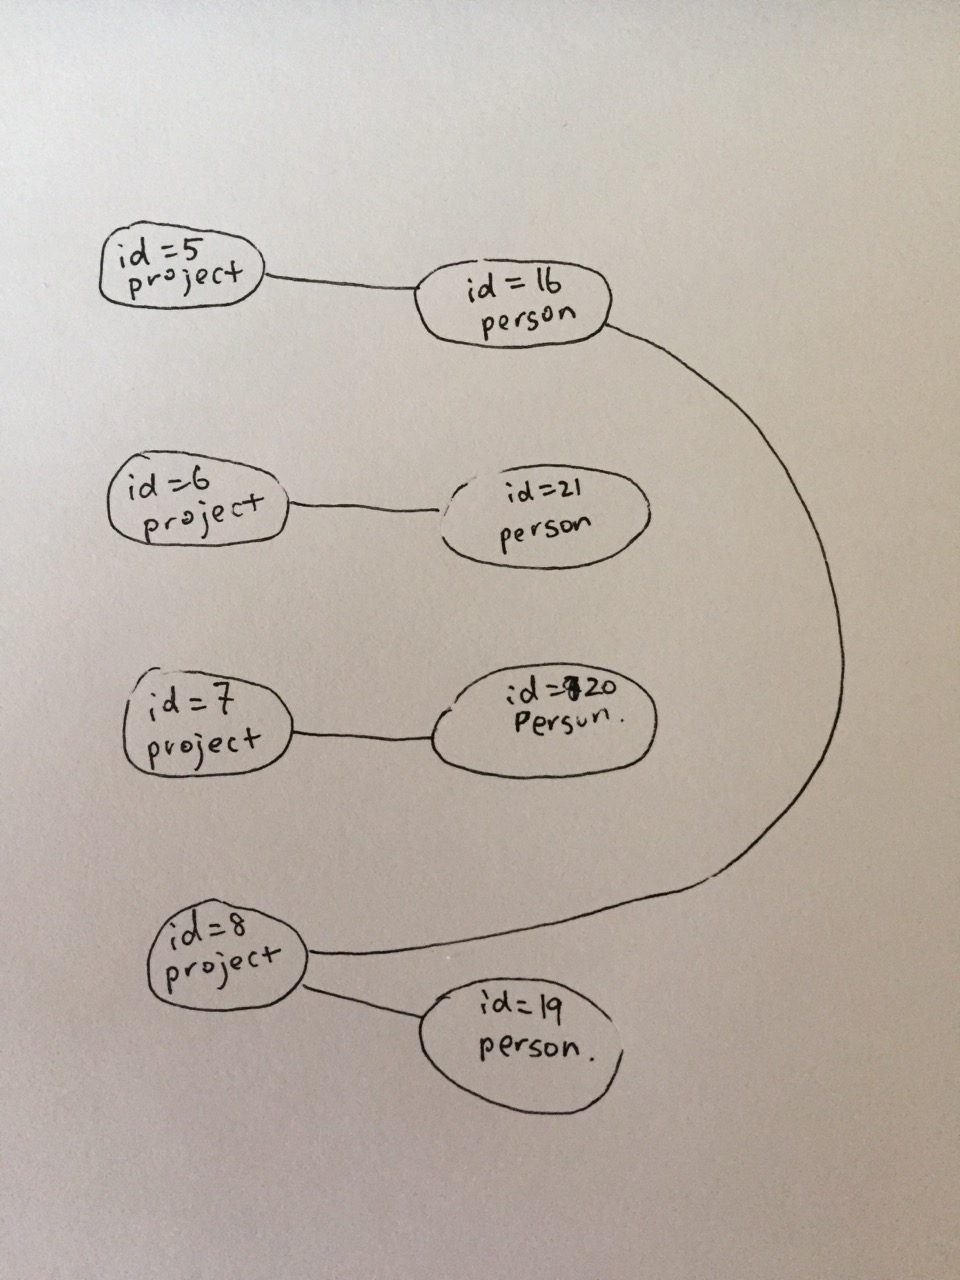 id=5
project
id=16
person
id=6
project
id=21
person
id=7
project
id=20
Person.
id=8
project
id=19
person.